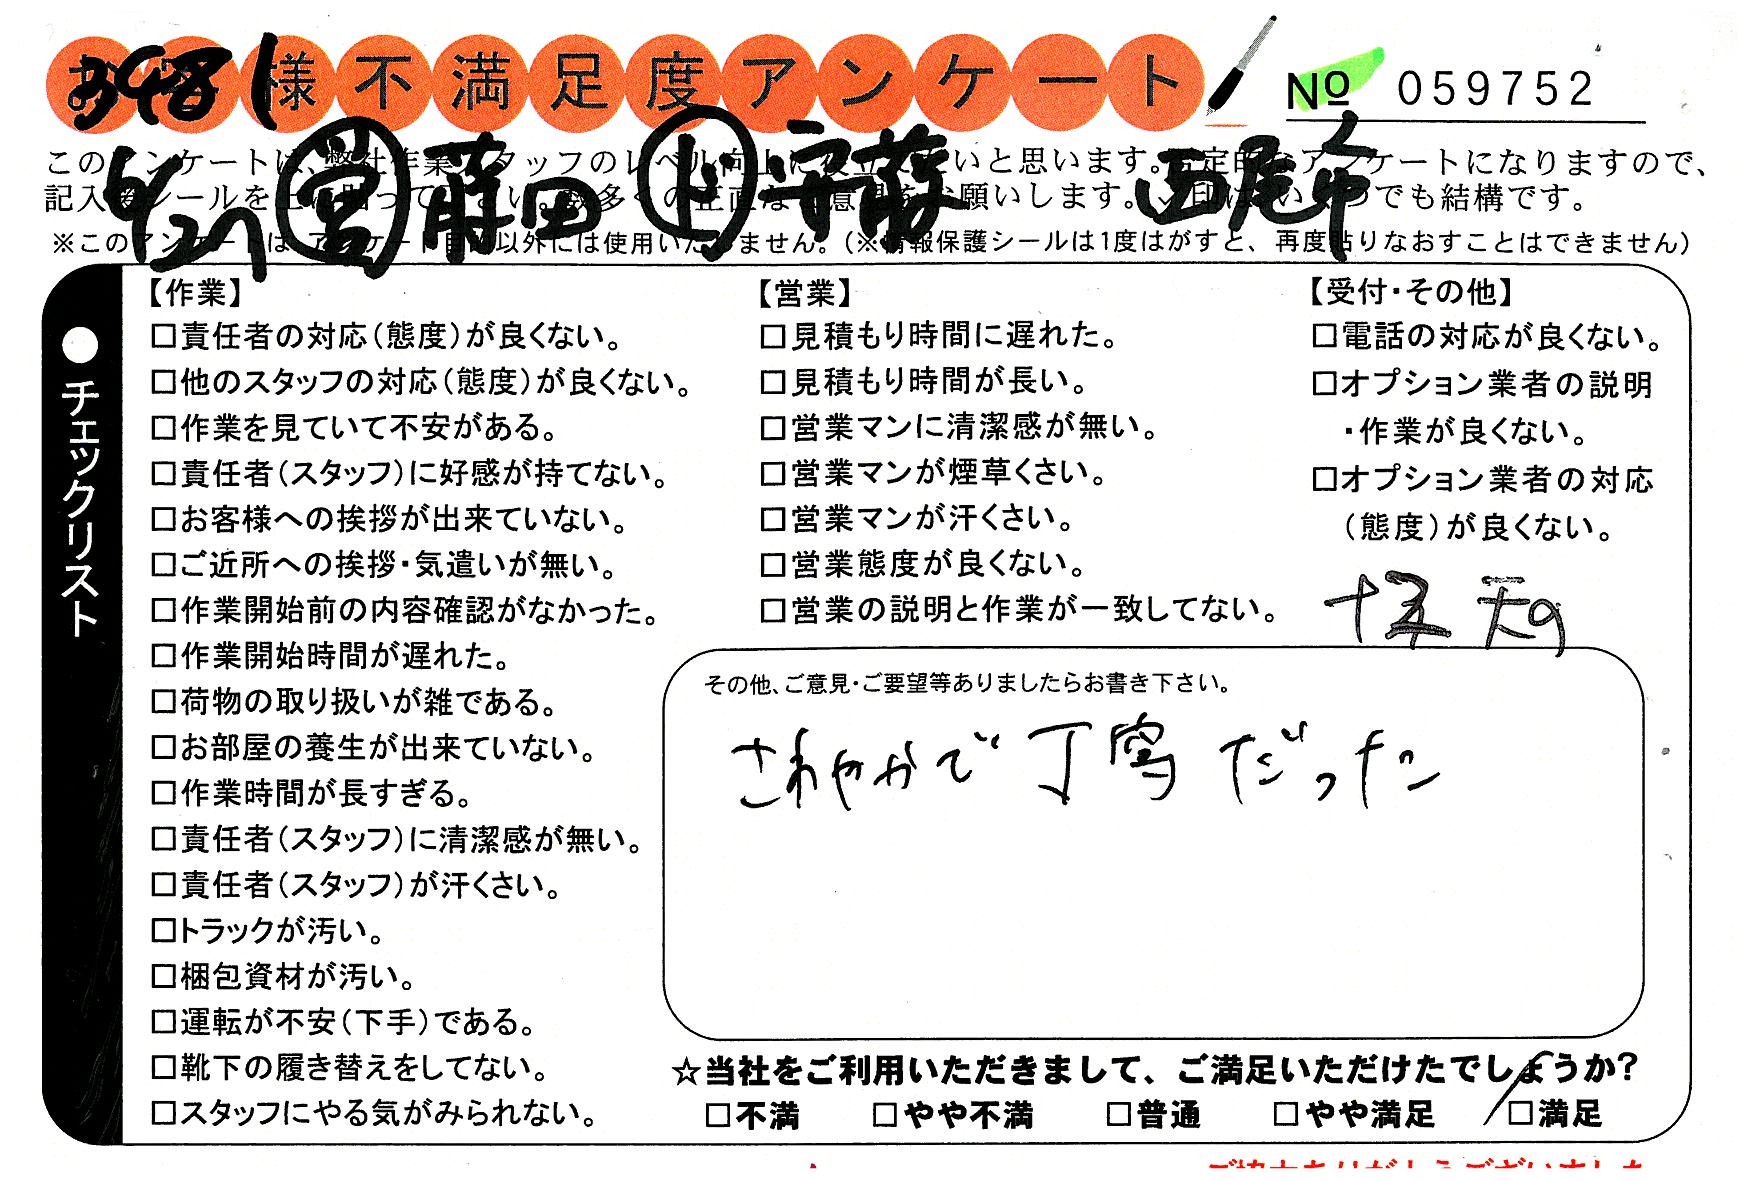 お客様不満足度アンケート
3981
No 059752
このアンケートは、弊社作業スタッフのレベル向上に役立てたいと思います。否定的なアンケートになりますので、
記入後シールを上に貼って下さい。数多くの正直なご意見をお願いします。✓印はいくつでも結構です。
※このアンケートは、アンケート目的以外には使用いたしません。（※情報保護シールは1度はがすと、再度貼りなおすことはできません）
6/27 営 蒔田 安藤 西尾
●チェックリスト
【作業】
□責任者の対応（態度）が良くない。
□他のスタッフの対応（態度）が良くない。
□作業を見ていて不安がある。
□責任者（スタッフ）に好感が持てない。
□お客様への挨拶が出来ていない。
□ご近所への挨拶・気遣いが無い。
□作業開始前の内容確認がなかった。
□作業開始時間が遅れた。
□荷物の取り扱いが雑である。
□お部屋の養生が出来ていない。
□作業時間が長すぎる。
□責任者（スタッフ）に清潔感が無い。
□責任者（スタッフ）が汗くさい。
□トラックが汚い。
□梱包資材が汚い。
□運転が不安（下手）である。
□靴下の履き替えをしてない。
□スタッフにやる気がみられない。
【営業】
□見積もり時間に遅れた。
□見積もり時間が長い。
□営業マンに清潔感が無い。
□営業マンが煙草くさい。
□営業マンが汗くさい。
□営業態度が良くない。
□営業の説明と作業が一致してない。
【受付・その他】
□電話の対応が良くない。
□オプション業者の説明
・作業が良くない。
□オプション業者の対応
（態度）が良くない。
その他、ご意見・ご要望等ありましたらお書き下さい。
さわやかで丁寧だった
☆当社をご利用いただきまして、ご満足いただけたでしょうか？
□不満 □やや不満 □普通 □やや満足 □満足
ご協力ありがとうございました